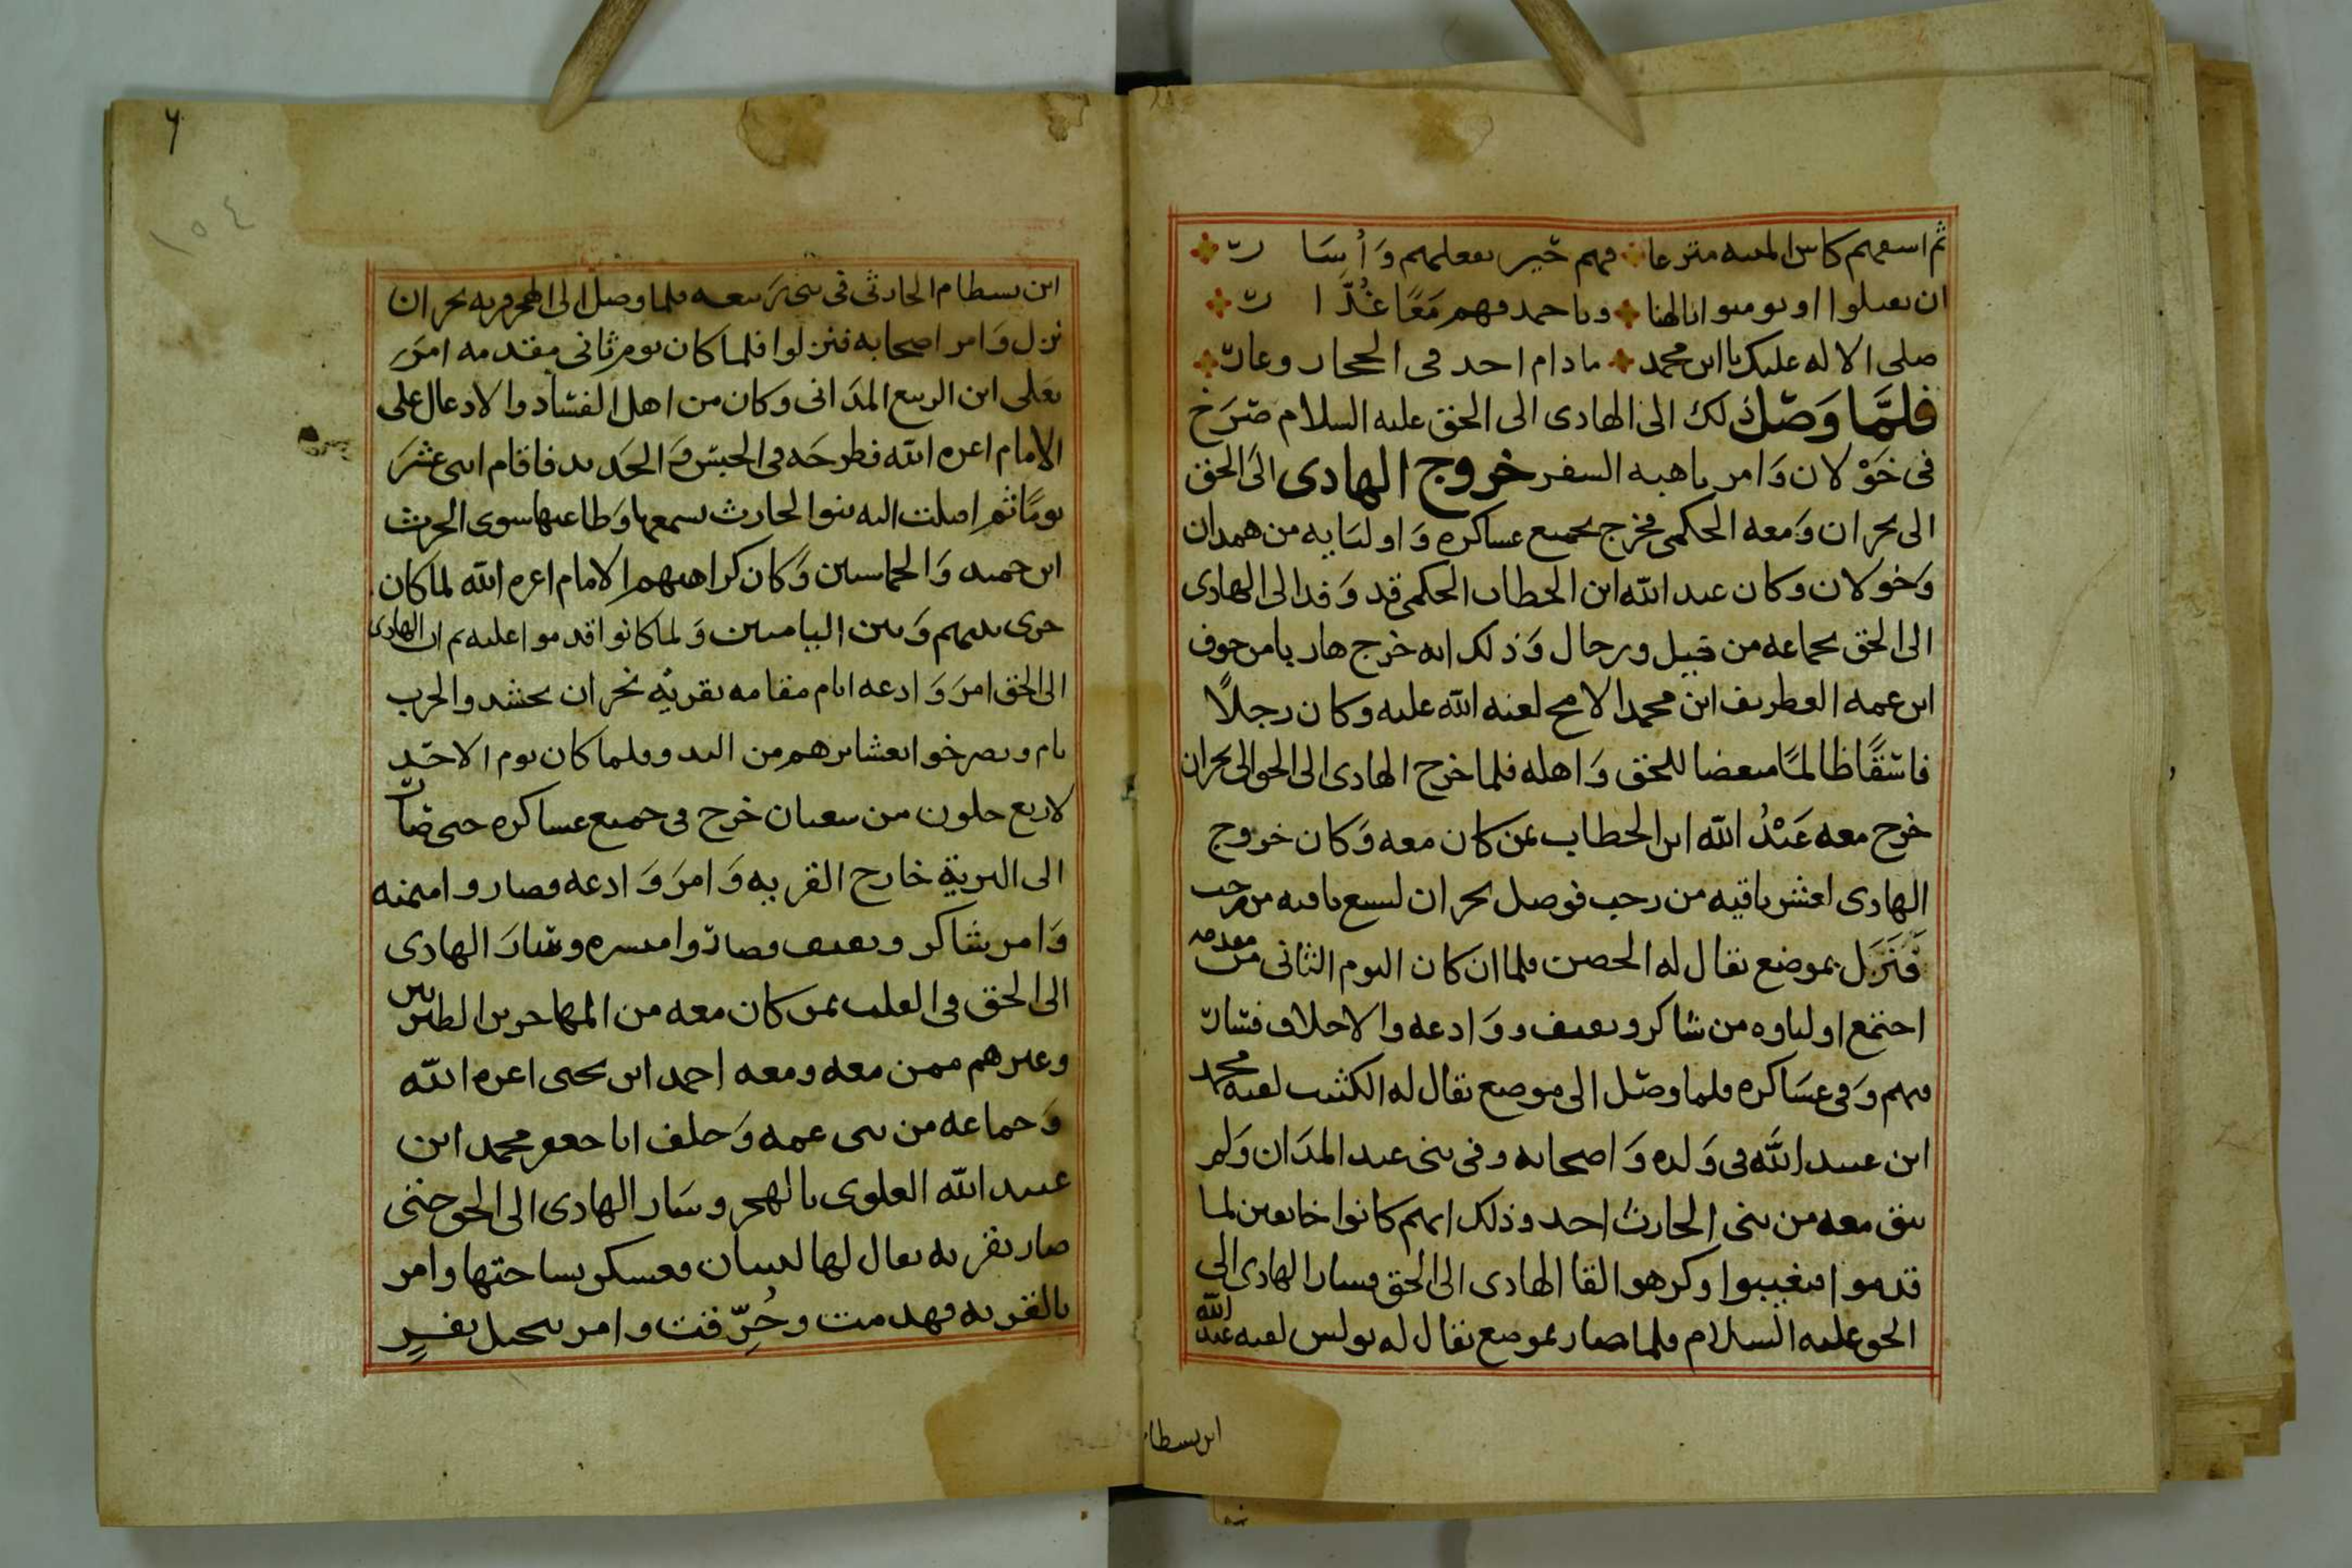 ثم اسقهم كاس المنيه مترعا فهم خير بفعلهم وأبسار
ان يقبلوا او يومنوا انا لهنا وباحمد فهم معًا غدّار
صلى الاله عليك يا ابن محمد ما دام احد فى الحجار وعار
فلمّا وصل ذلك الى الهادى الى الحق عليه السلام صرخ
فى خَوْلان وَامر باهبه السفر خروج الهادى الى الحق
الى نجران وَمعه الحكمى فخرج بجميع عساكره وَاوليائه من همدان
وَخولان وكان عبد الله ابن الخطاب الحكمى قد وَفد الى الهادى
الى الحق بجماعه من خيل ورجال وَذلك انه خرج هاربا من خوف
ابن عمه الغطريف ابن محمد لعنه الله عليه وكان رجلًا
فاسقًا ظالمًا مبغضا للحق وَاهله فلما خرج الهادى الى الحق الى نجران
خرج معه عَبْدُ الله ابن الخطاب بمن كان معه وَكان خروج
الهادى لعشر باقيه من رجب فوصل نجران لسبع باقيه من رجب
فَنَزَل بموضع يقال له الحصن فلما ان كان اليوم الثانى من مقدمه
اجتمع اولياوه من شاكر وثقيف ووَادعه والاحلاف فسار
فيهم وَفى عسَاكره فلما وصل الى موضع يقال له الكثيب لقيه محمد
ابن عبيد الله فى وَلده وَاصحابه وفى بنى عبد المدَان وَلم
يبق معه من بنى الحارث احد وذلك انهم كانوا خايفين لما
قدموا فتغيبوا وكرهوا لقا الهادى الى الحق فسار الهادى الى
الحق عليه السلام فلما صار بموضع يقال له بولس لقيه عبد الله
ابن بسطا
ابن بسطام الحارثى فى بنى رَبيعه فلما وصل الى الهجر قريه نجران
نزل وَامر اصحابه فنزلوا فلما كان يوم ثانى مقدمه امَر
بعلى ابن الربيع المدَانى وكان من اهل الفساد والادعال على
الامام اعزه الله فطرحَه فى الحبس وَالحَديد فاقام اثنى عشرَ
يومًا ثم اقبلت اليه بنوا الحارث بسمعها وَطاعتها سوى الحرث
ابن حميد وَالحماسيين وَكان كراهيهم الامام اعزه الله لما كان
جرى بينهم وَبين الياميين وَلما كانوا قدموا عليه ثم ان الهادى
الى الحق امرَ وَادعه ايام مقامه بقريْه نجران بحشد والحرب
يام ويصرخوا بعشايرهم من البدو فلما كان يوم الاحَد
لاربع خلون من شعبان خرج فى جميع عساكره حتى صار
الى البرية خارج القريه وَامرَ وَادعه فصاروا ميمنه
وَامر شاكر وثقيف فصاروا ميسره وسَارَ الهادى
الى الحق فى القلب بمن كان معه من المهاجرين الطبريين
وغيرهم ممن معه ومعه احمد ابن يحيى اعزه الله
وَجماعه من بنى عمه وَخلف ابا جعفر محمد ابن
عبيد الله العلوى بالهجر وسَار الهادى الى الحق حتى
صار بقريه يقال لها فعسكر بساحتها وامر
بالقريه فهدمت وحُرّقت وامر بنخيل نفرٍ
١٥٤